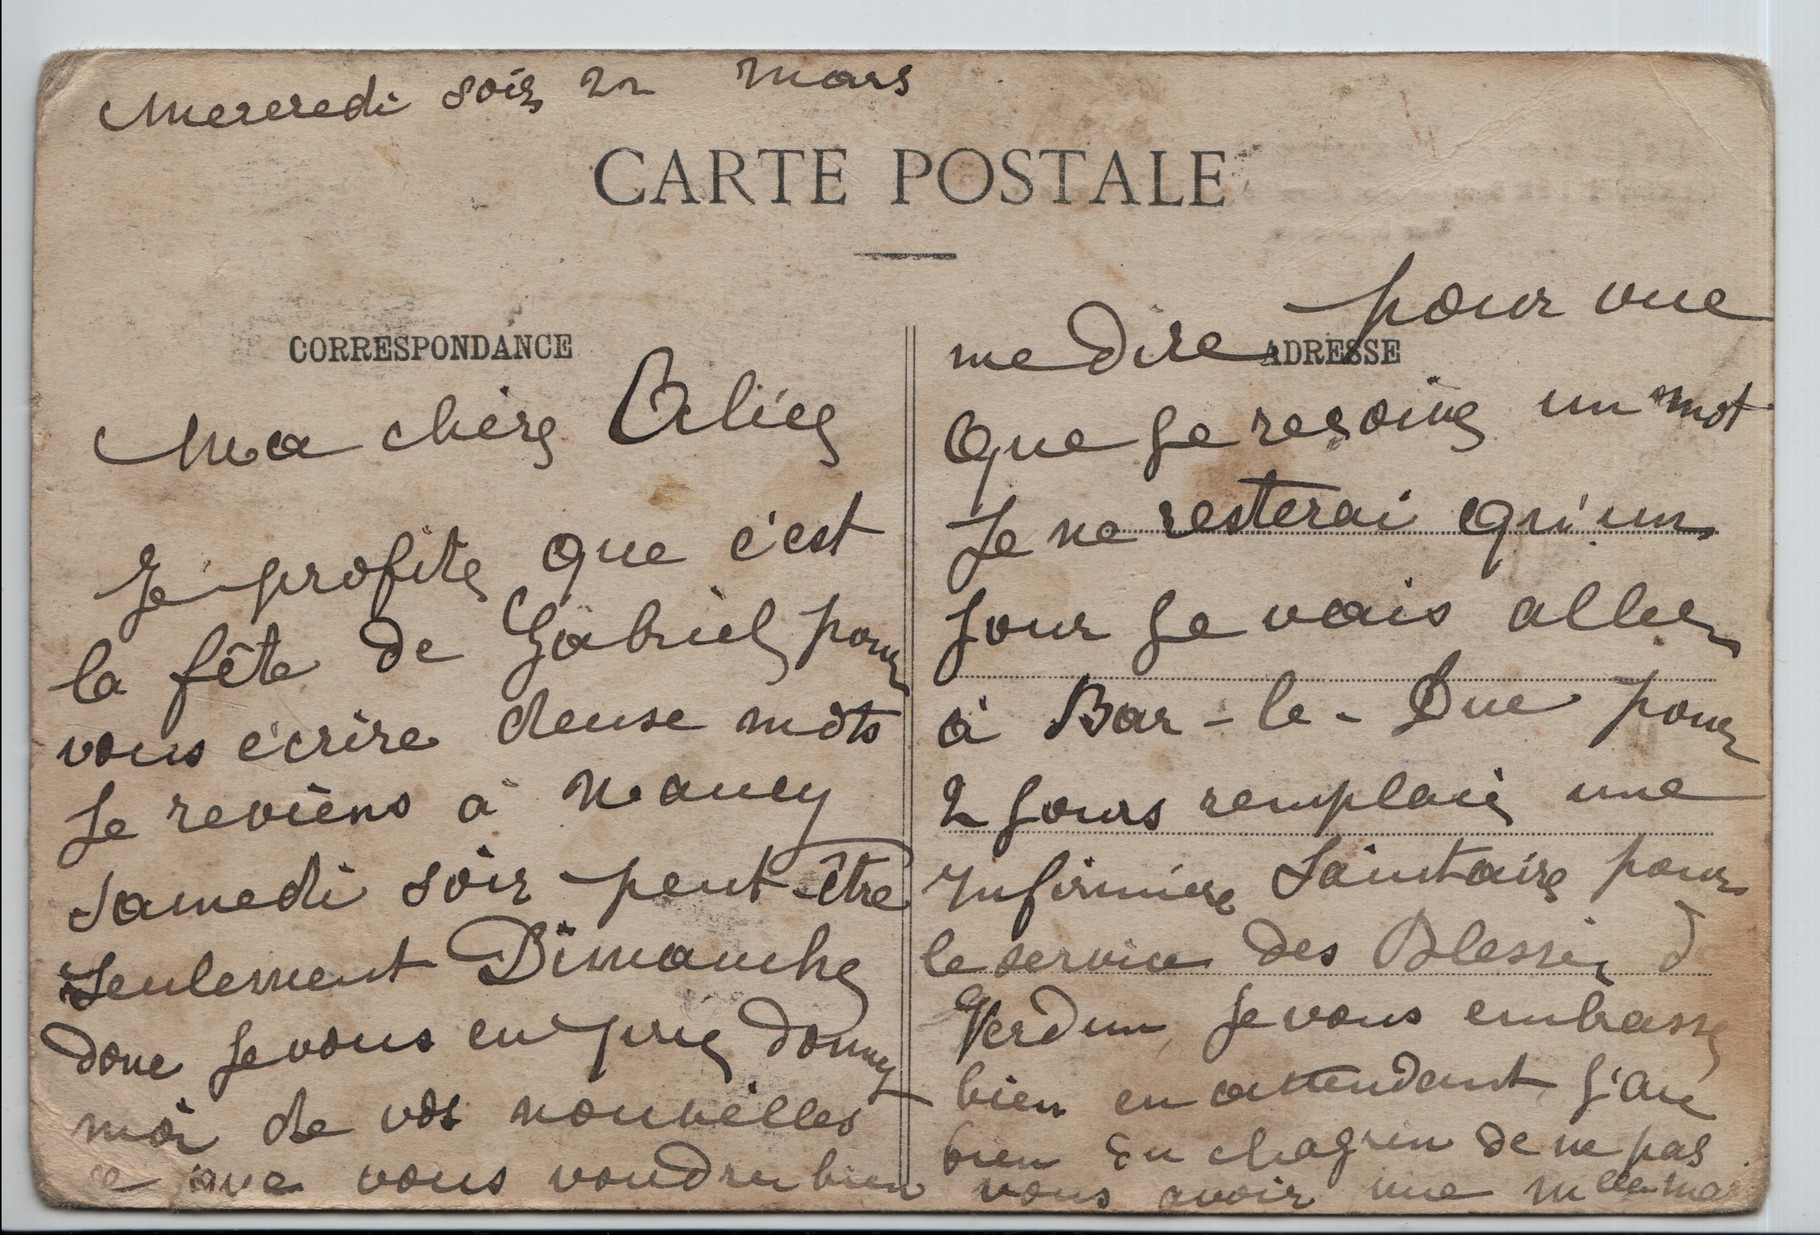 Mercredi soir 22 Mars
CARTE POSTALE
CORRESPONDANCE
Ma chère Alice
Je profite que c'est
la fête de Gabriel pour
vous écrire deuse mots
Je reviens à Nancy
Samedi soir peut-être
seulement Dimanche
donc Je vous en prie donnez
moi de vos nouvelles
ce que vous voudrez bien
ADRESSE
me dire pour vue
que Je reçoive un mot
Je ne resterai qu'un
Jour Je vais aller
à Bar-le-Duc pour
2 Jours remplacé une
Infirmière Saintaire pour
le service des Blessés d
Verdun, Je vous embrasse
bien en attendant, J'ai
bien Eu chagrin de ne pas
vous avoir vue